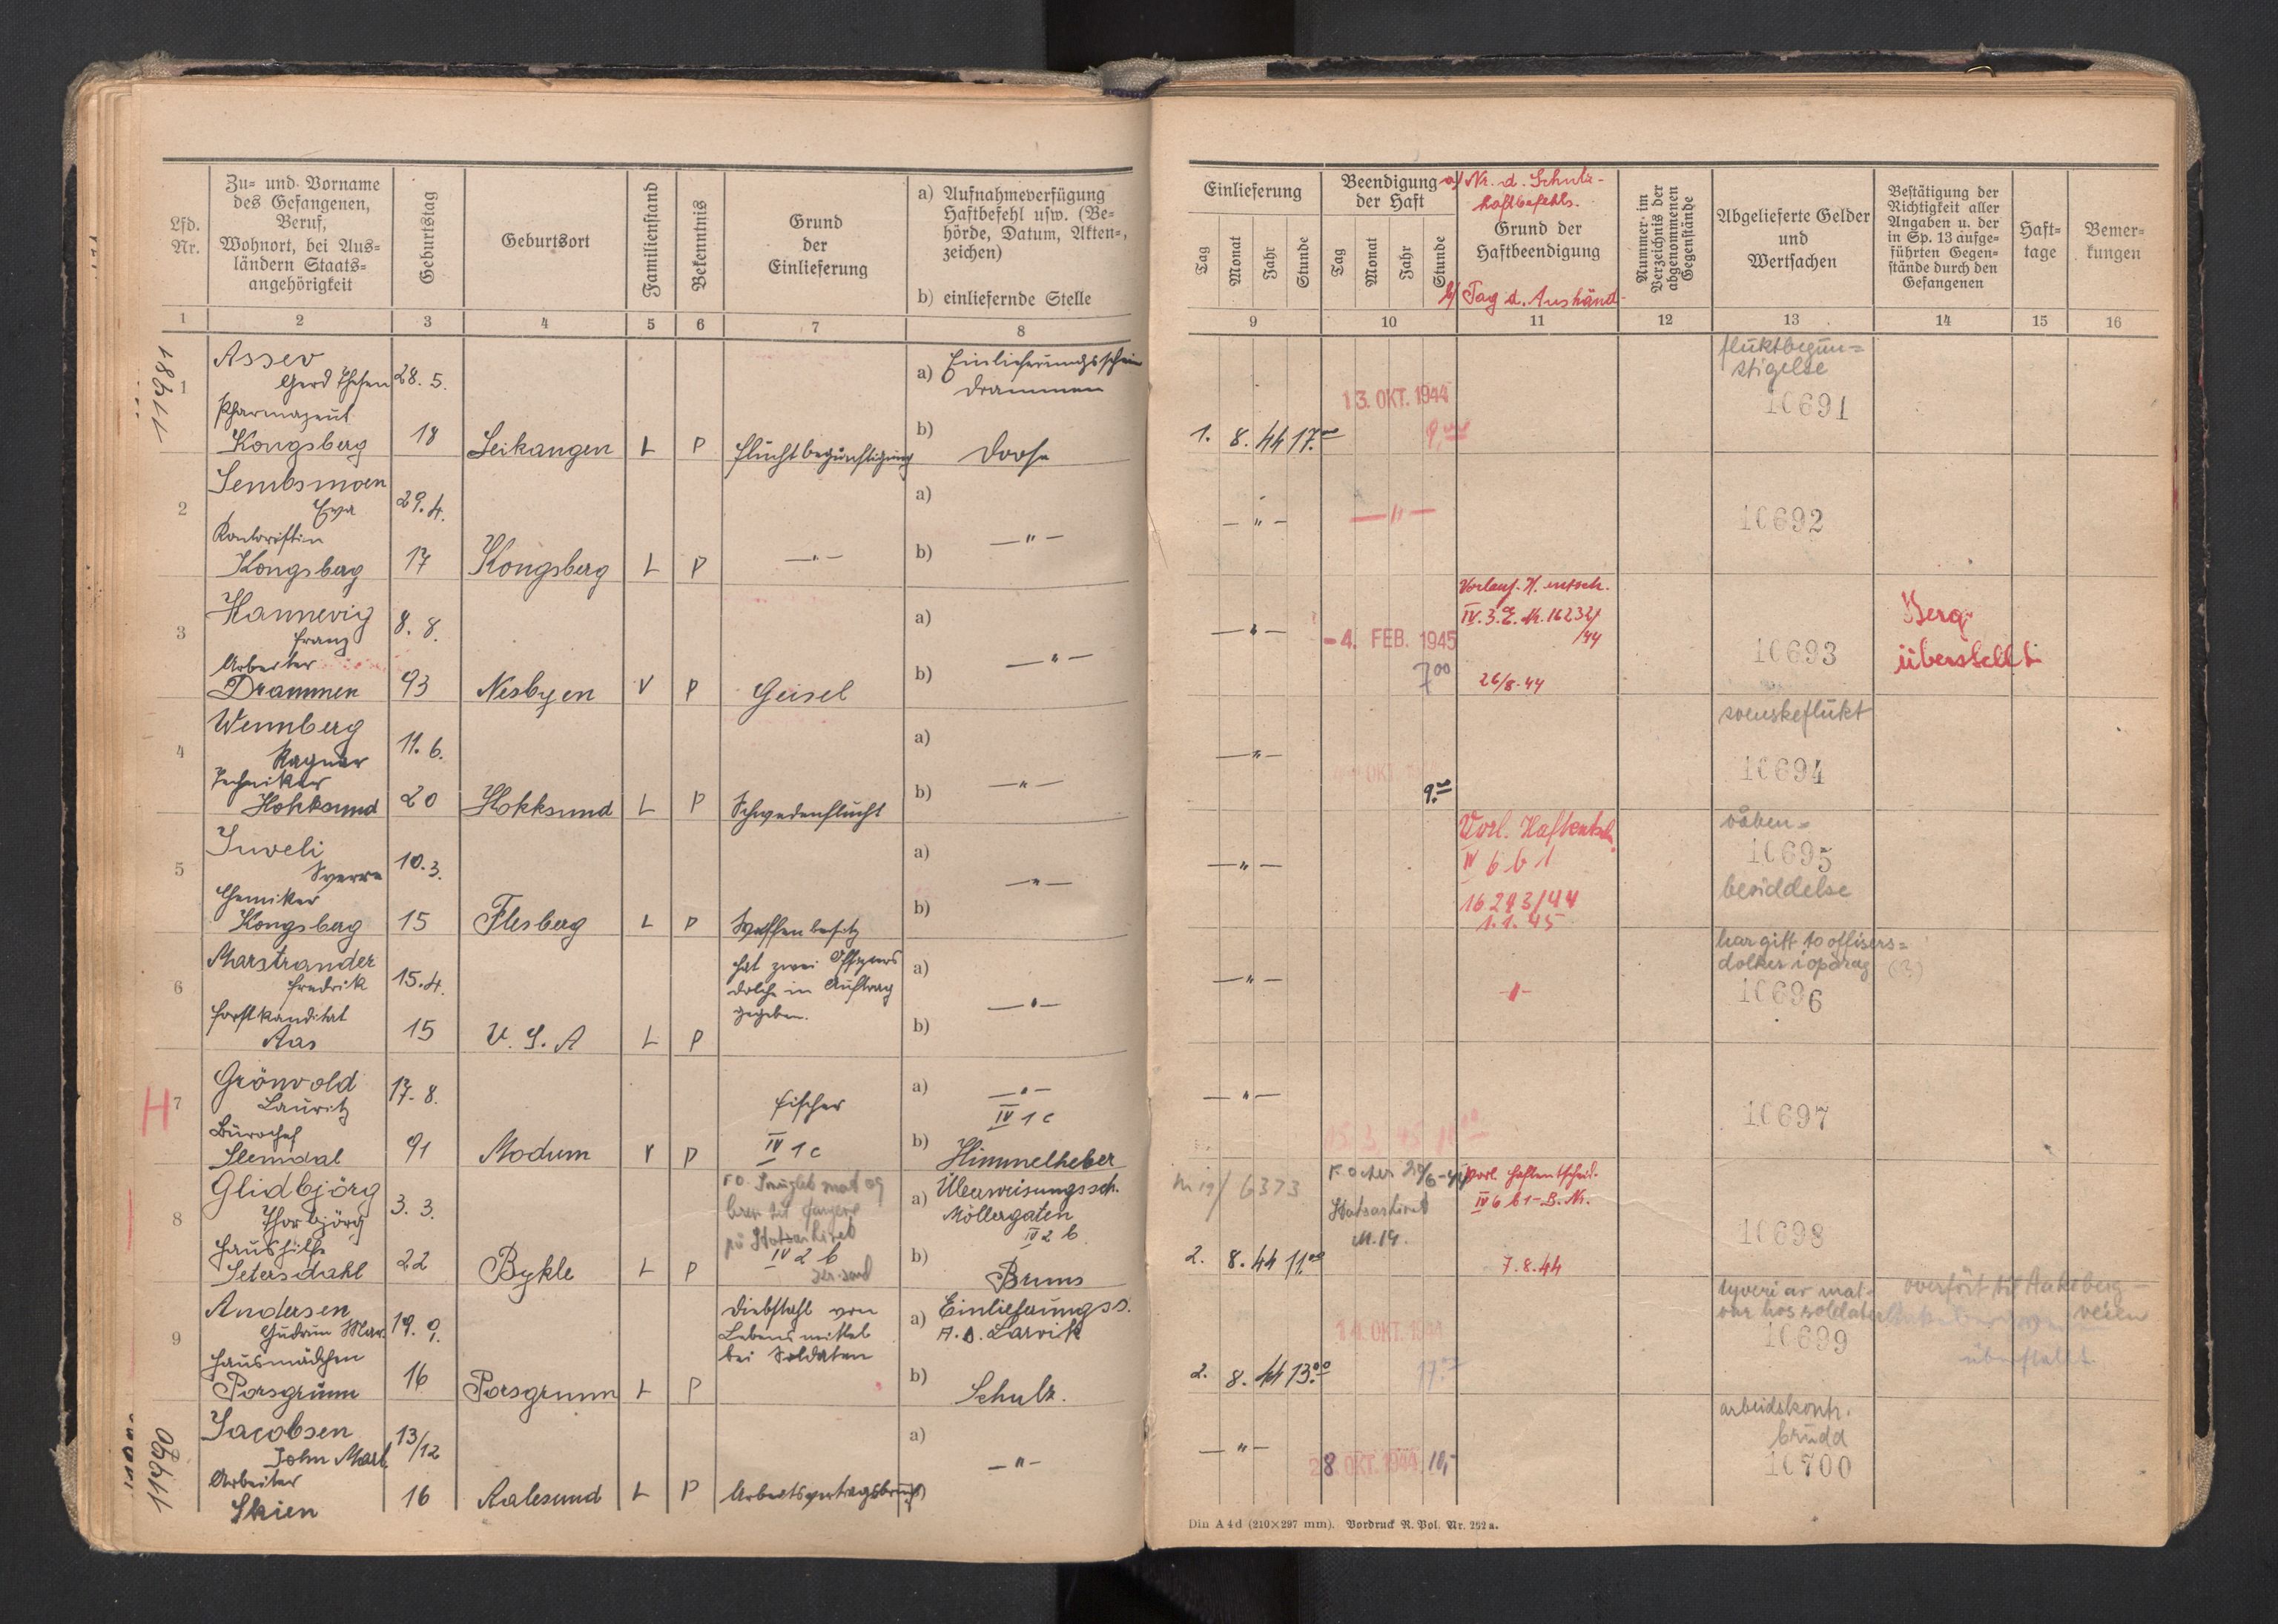 Lfd. Nr.
Zu- und Vorname
des Gefangenen,
Beruf,
Wohnort, bei Aus-
ländern Staats-
angehörigkeit
Geburtstag
Geburtsort
Familienstand
Bekenntnis
Grund
der
Einlieferung
a) Aufnahmeverfügung
Haftbefehl usw. (Be-
hörde, Datum, Akten-,
zeichen)
b) einliefernde Stelle
1 2 3 4 5 6 7 8
11481
1
Assev
Gerd Thesen 28. 5.
Pharmazeut
Kongsberg 18 Leikangen L P Fluchtbegünstigung
a) Einlieferungsschein
Drammen
b) Doose
2
Sembsmoen
Eva 29. 4.
Kontoristin
Kongsberg 17 Kongsberg L P —"—
a)
b) —"—
3
Hannevig
Franz 8. 8.
Arbeiter
Drammen 93 Nesbyen V P Geisel
a)
b) —"—
4
Wennberg
Ragnar 11. 6.
Techniker
Hokksund 20 Hokksund L P Schwedenflucht
a)
b) —"—
5
Juveli
Sverre 10. 3.
Chemiker
Kongsberg 15 Flesberg L P Waffenbesitz
a)
b) —"—
6
Marstrander
Fredrik 15. 4.
Forstkandidat
Aas 15 U. S. A L P
hat zwei Offiziers
dolche in Auftrag
gegeben.
a)
b) —"—
H 7
Grönvold
Lauritz 17. 8.
Bürochef
Slemdal 91 Modum V P
Fischer
IV 1 c
a) —"—
IV 1 c
b) Himmelheber
8
Glidbjörg
Thorbjörg 3. 3.
Haushilfe
Setersdahl 22 Bykle L P
mat og
på
IV 2 b
a) Überweisungssch.
Möllergaten
IV 2 b
b) Bruns
9
Andersen
Gudrun Mar. 19. 9.
Hausmädchen
Porsgrunn 16 Porsgrunn L P
Diebstahl von
Lebensmittel
bei Soldaten
a) Einlieferungss.
A. D. Larvik
b) Schulz.
11490
Jacobsen
John Marl 13/12
Arbeiter
Skien 16 Aalesund L P Arbeitsvertragsbruch
a)
—"—
Einlieferung
Tag Monat Jahr Stunde
Beendigung
der Haft
Tag Monat Jahr Stunde
a) Nr. d. Schutz-
haftbefehls.
Grund der
Haftbeendigung
b) Tag d. Aushänd-
Nummer im
Verzeichnis der
abgenommenen
Gegenstände
Abgelieferte Gelder
und
Wertsachen
Bestätigung der
Richtigkeit aller
Angaben u. der
in Sp. 13 aufge-
führten Gegen-
stände durch den
Gefangenen
Haft-
tage
Bemer-
kungen
9 10 11 12 13 14 15 16
fluktbegün-
stigelse
13. OKT. 1944
10691
1. 8. 44 17.00 9,00
—"— —"— 10692
Vorläuf. H. entsch.
IV. 3. E. Nr. 16232/
/44
—"— -4. FEB. 1945
7 00
26/8. 44
10693
Berg
überstellt
svenskeflukt
—"—
OKT.
9.00
10694
Vorl. Haftentsch.
IV 6 b 1
16 243/44
1. 1. 45
—"—
våben-
10695
besiddelse
har gitt to offisers-
dolker i opdrag (?)
—"— —"—
10696
—"—
15 3 45
10697
6373
M. 19.
Vorl. Haftentscheid.
IV 6 b 1 - B. Nr.
7. 8. 44
2. 8. 44 11.00
10698
tyveri av mat-
var hos soldater
10699
overfört til Aakeberg-
veien
überstellt
14. OKT. 1944
17.00
2. 8. 44 13.00
arbeidskontr.
brudd
10700
—"— 28. OKT. 1944 10,-
Din A 4 d (210×297 mm). Vordruck R. Pol. Nr. 252 a.